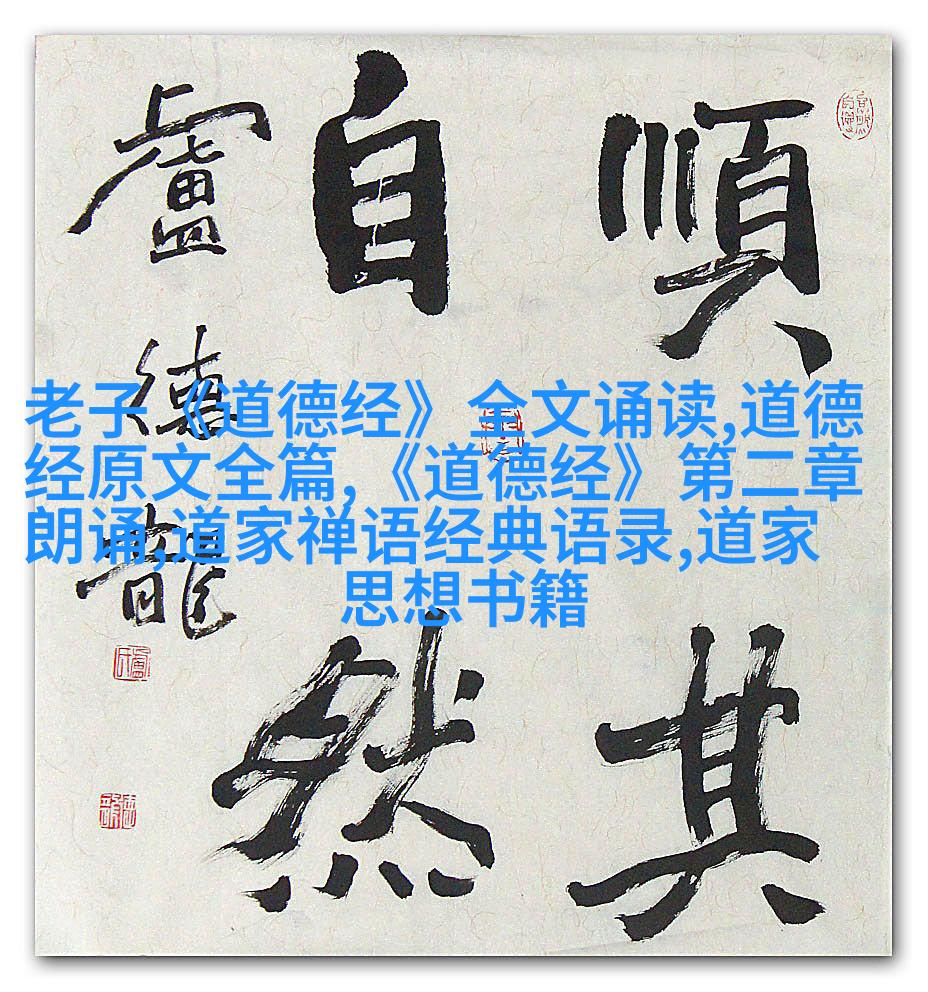 順其
自然
盧德龍
老子《道德经》全文诵读,道德
经原文全篇,《道德经》第二章
朗诵,道家禅语经典语录,道家
思想书籍